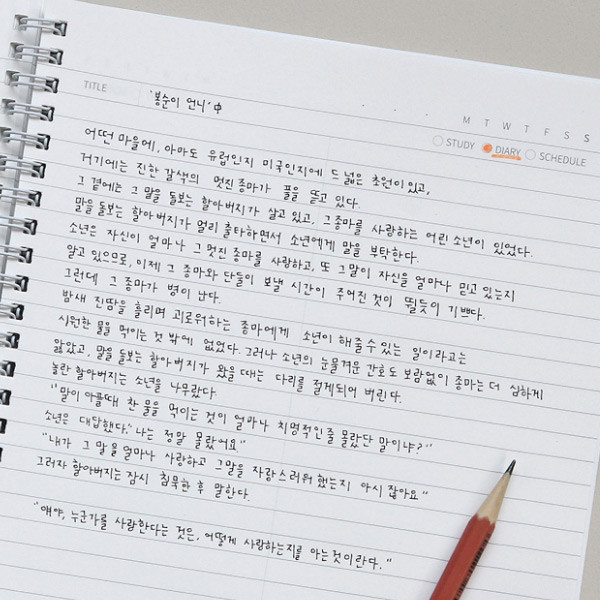 TITLE
'봉순이 언니' 中
M T W T F S S
STUDY DIARY SCHEDULE
어떤 마을에, 아마도 유럽인지 미국인지에 드넓은 초원이 있고,
거기에는 진한 갈색의 멋진 종마가 풀을 뜯고 있다.
그 곁에는 그 말을 돌보는 할아버지가 살고 있고, 그 종마를 사랑하는 어린 소년이 있었다.
말을 돌보는 할아버지가 멀리 출타하면서 소년에게 말을 부탁한다.
소년은 자신이 얼마나 그 멋진 종마를 사랑하고, 또 그 말이 자신을 얼마나 믿고 있는지
알고 있으므로, 이제 그 종마와 단둘이 보낼 시간이 주어진 것이 뛸듯이 기쁘다.
그런데 그 종마가 병이 난다.
밤새 진땀을 흘리며 괴로워하는 종마에게 소년이 해줄 수 있는 일이라고는
시원한 물을 먹이는 것 밖에 없었다. 그러나 소년의 눈물겨운 간호도 보람없이 종마는 더 심하게
앓았고, 말을 돌보는 할아버지가 왔을 때는 다리를 절게되어 버린다.
놀란 할아버지는 소년을 나무랐다.
"말이 아플때 찬 물을 먹이는 것이 얼마나 치명적인줄 몰랐단 말이냐?"
소년은 대답했다. "나는 정말 몰랐어요"
"내가 그 말을 얼마나 사랑하고 그 말을 자랑스러워 했는지 아시잖아요"
그러자 할아버지는 잠시 침묵한 후 말한다.
"얘야, 누군가를 사랑한다는 것은, 어떻게 사랑하는지를 아는 것이란다."